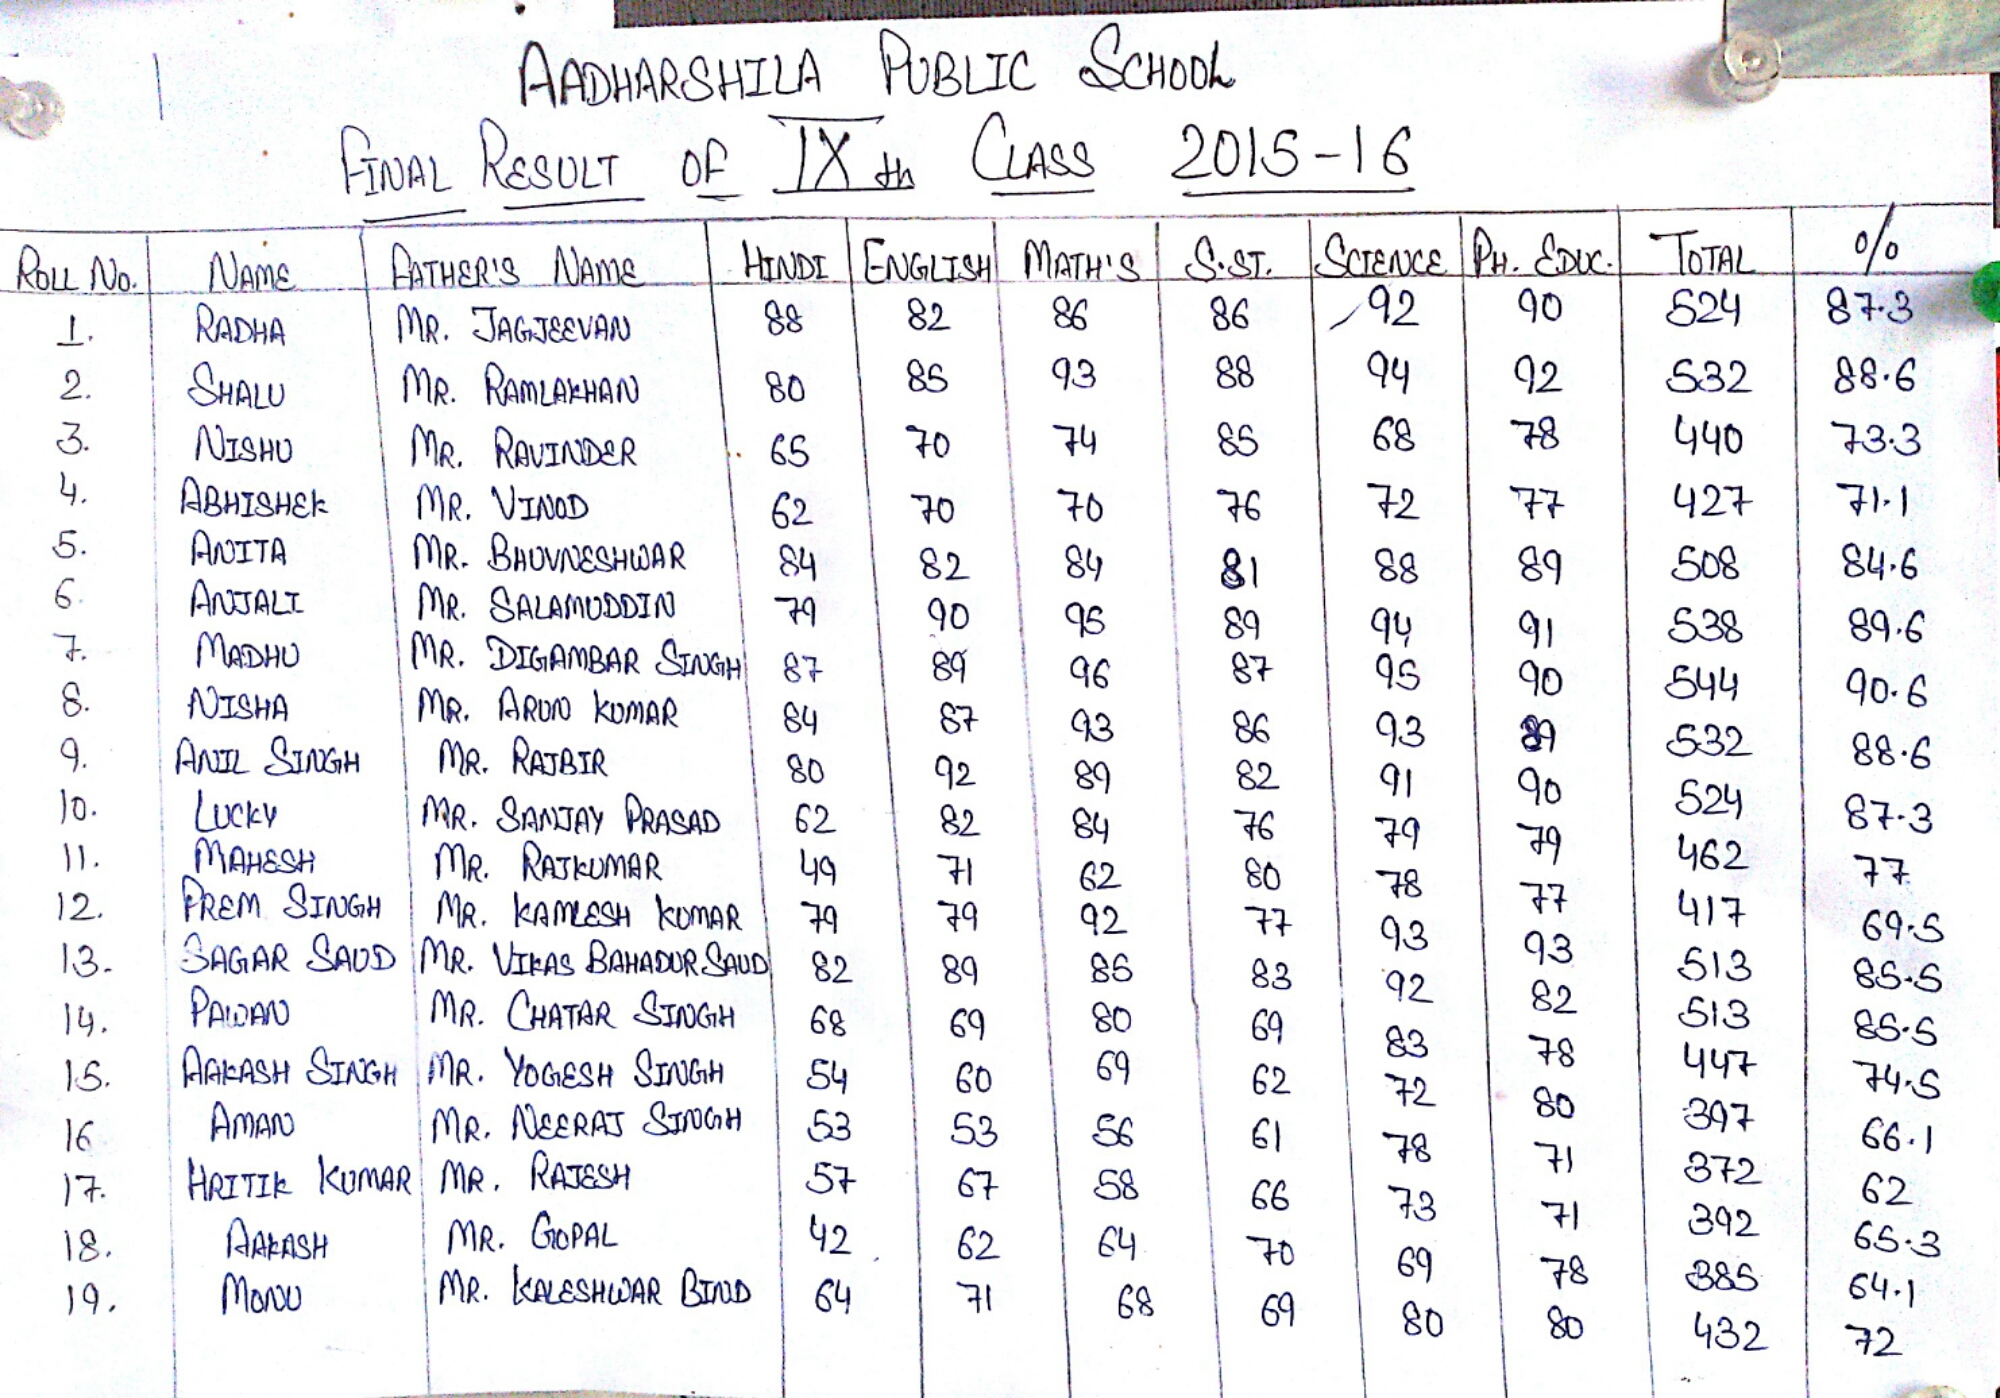 AADHARSHILA PUBLIC SCHOOL
FINAL RESULT OF IXth CLASS 2015-16
ROLL NO. NAME FATHER'S NAME HINDI ENGLISH MATH'S S.ST. SCIENCE PH. EDUC. TOTAL %
1. RADHA MR. JAGJEEVAN 88 82 86 86 92 90 524 87.3
2. SHALU MR. RAMLAKHAN 80 85 93 88 94 92 532 88.6
3. NISHU MR. RAVINDER 65 70 74 85 68 78 440 73.3
4. ABHISHEK MR. VINOD 62 70 70 76 72 77 427 71.1
5. ANITA MR. BHUVNESHWAR 84 82 84 81 88 89 508 84.6
6. ANJALI MR. SALAMUDDIN 79 90 95 89 94 91 538 89.6
7. MADHU MR. DIGAMBAR SINGH 87 89 96 87 95 90 544 90.6
8. NISHA MR. ARUN KUMAR 84 87 93 86 93 89 532 88.6
9. ANIL SINGH MR. RAJBIR 80 92 89 82 91 90 524 87.3
10. LUCKY MR. SANJAY PRASAD 62 82 84 76 79 79 462 77
11. MAHESH MR. RAJKUMAR 49 71 62 80 78 77 417 69.5
12. PREM SINGH MR. KAMLESH KUMAR 79 79 92 77 93 93 513 85.5
13. SAGAR SAUD MR. VIKAS BAHADUR SAUD 82 89 85 83 92 82 513 85.5
14. PAWAN MR. CHATAR SINGH 68 69 80 69 83 78 447 74.5
15. AAKASH SINGH MR. YOGESH SINGH 54 60 69 62 72 80 397 66.1
16 AMAN MR. NEERAJ SINGH 53 53 56 61 78 71 372 62
17. HRITIK KUMAR MR. RAJESH 57 67 58 66 73 71 392 65.3
18. AAKASH MR. GOPAL 42 62 64 70 69 78 385 64.1
19. MONU MR. KALESHWAR BIND 64 71 68 69 80 80 432 72